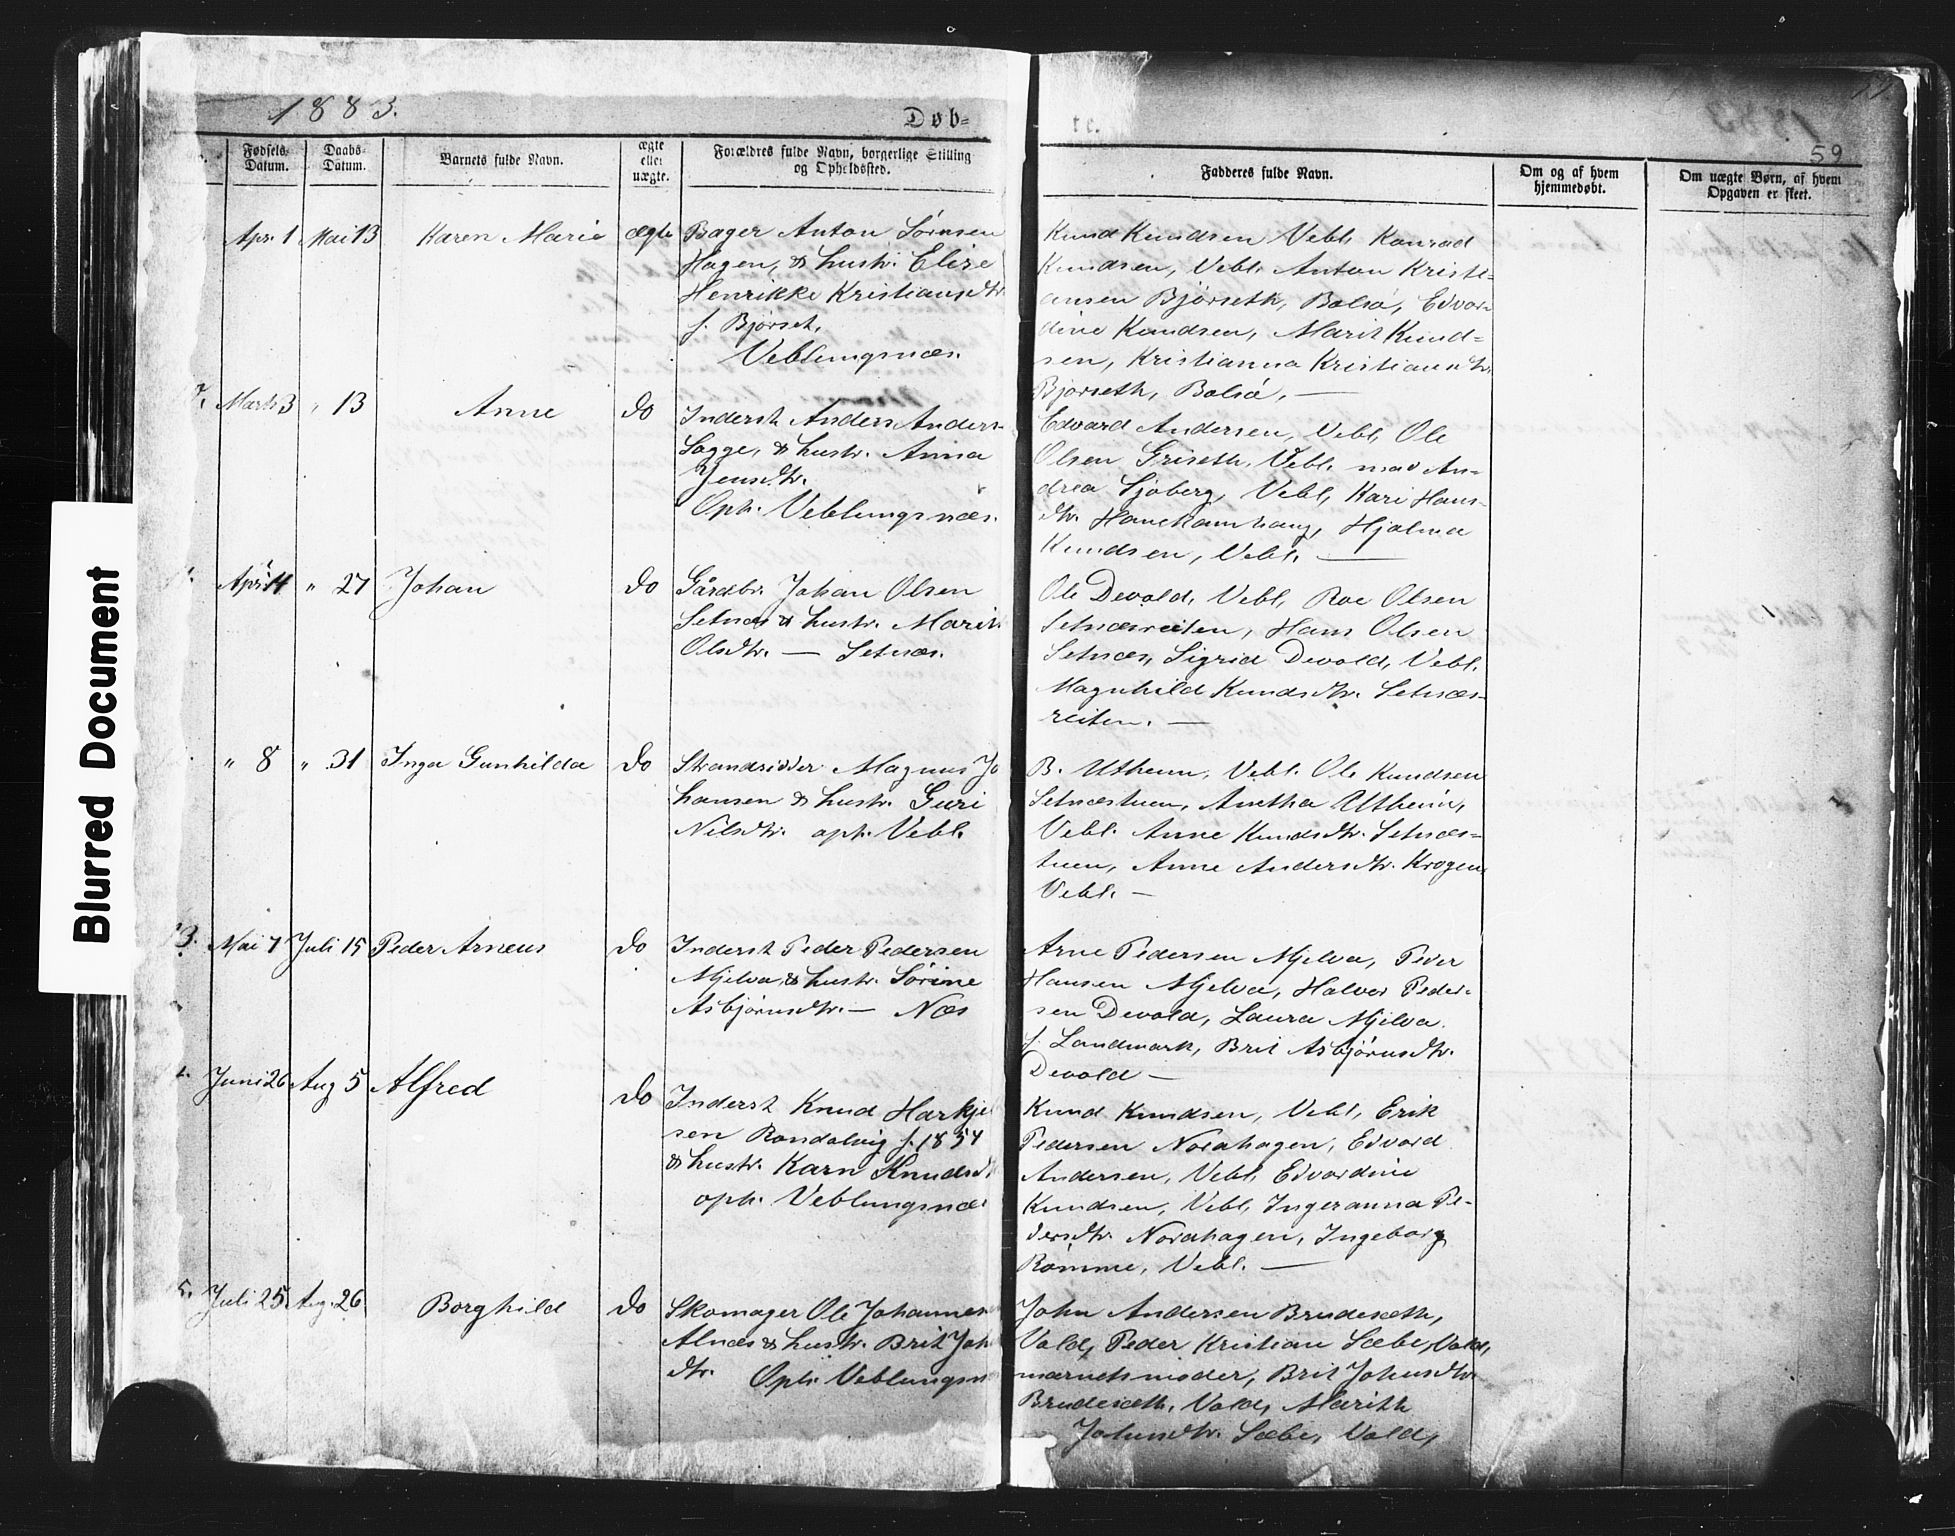 Blurred Document
1883.
Døb-
te.
59
Fødsels-
Datum.
Daabs-
Datum.
Barnets fulde Navn.
ægte
eller
uægte.
Forældres fulde Navn, borgerlige Stilling
og Opholdssted.
Fadderes fulde Navn.
Om og af hvem
hjemmedøbt.
Om uægte Børn, af hvem
Opgaven er skeet.
Apr. 1 Mai 13 Karen Marie ægte
Bager Anton Sørnsen
Hagen, & hustr. Elise
Henrikke Kristiansdtr
f. Bjørset,
Veblungsnæs.
Knud Knudsen Vebl. Konrad
Knudsen, Vebl. Anton Kristi-
ansen Bjørseth, Bolsø, Edvar-
dine Knudsen, Marit Knud-
sen, Kristianna Kristiansdtr.
Bjørseth, Bolsø, —
Marts 3 " 13 Anne do
Inderst Anders Anders-
Sogge, & hustr. Anna
Jensdtr.
Oph. Veblungsnæs.
Edvard Andersen, Vebl. Ole
Olsen Griseth, Vebl. mad An-
drea Sjøberg, Vebl, Kari Hans-
dtr. Hanekamhaug, Hjalma
Knudsen, Vebl. —
Apr. 14 " 27 Johan do
Gårdbr. Johan Olsen
Setnæs & hustr. Marit
Olsdtr. — Setnæs.
Ole Devold, Vebl, Roe Olsen
Setnæsreiten, Hans Olsen
Setnæs, Sigrid Devold, Vebl.
Magnhild Knudsdtr. Setnæs-
reiten. —
" 8 " 31 Inga Gunhilda do
Strandsidder Magnus Jo
hansen & hustr. Guri
Nilsdtr. oph. Vebl.
B. Utheim, Vebl. Ole Knudsen
Setnæstuen, Anetha Utheim,
Vebl. Anne Knudsdtr. Setnæs-
tuen, Anne Andersdtr. Krogen
Vebl. —
3. Mai 7 Juli 15 Peder Arneus do
Inderst Peder Pedersen
Mjelva, & hustr. Sørine
Asbjørnsdtr. — Næs
Arne Pedersen Mjelva, Peder
Hansen Mjelva, Halvor Peder-
sen Devold, Laura Mjelva
f. Landmark, Brit Asbjørnsdtr.
Devold —
Juni 26 Aug 5 Alfred do
Inderst Knud Harkje
sen Rondalvig f. 1854
& hustr. Karn Knudsd
oph. Veblungsnæs
Knud Knudsen, Vebl, Erik
Pedersen Norahagen, Edvard
Andersen, Vebl, Edvardine
Knudsen, Vebl, Ingeranna Pe-
dersdtr. Norahagen, Ingeborg
Rømme, Vebl. —
5. Juli 25 Aug. 26 Borghild do
Skomager Ole Johannes
Alnæs & hustr. Brit Joh
dtr. Oph. Veblungsn
John Andersen Brudeseth,
Vold, Peder Kristian Sæbe, Vold,
mærnetsmoder, Brit Johnsdtr.
Brudeseth, Vold, Marith
Johnsdtr. Sæbe, Vold,